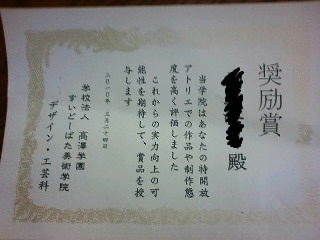 奨励賞
殿
当学院はあなたの特開放
アトリエでの作品や制作態
度を高く評価しました
これからの実力向上の可
能性を期待して、賞品を授
与します
二〇一〇年 三月二十四日
学校法人 高澤学園
すいどーばた美術学院
デザイン・工芸科